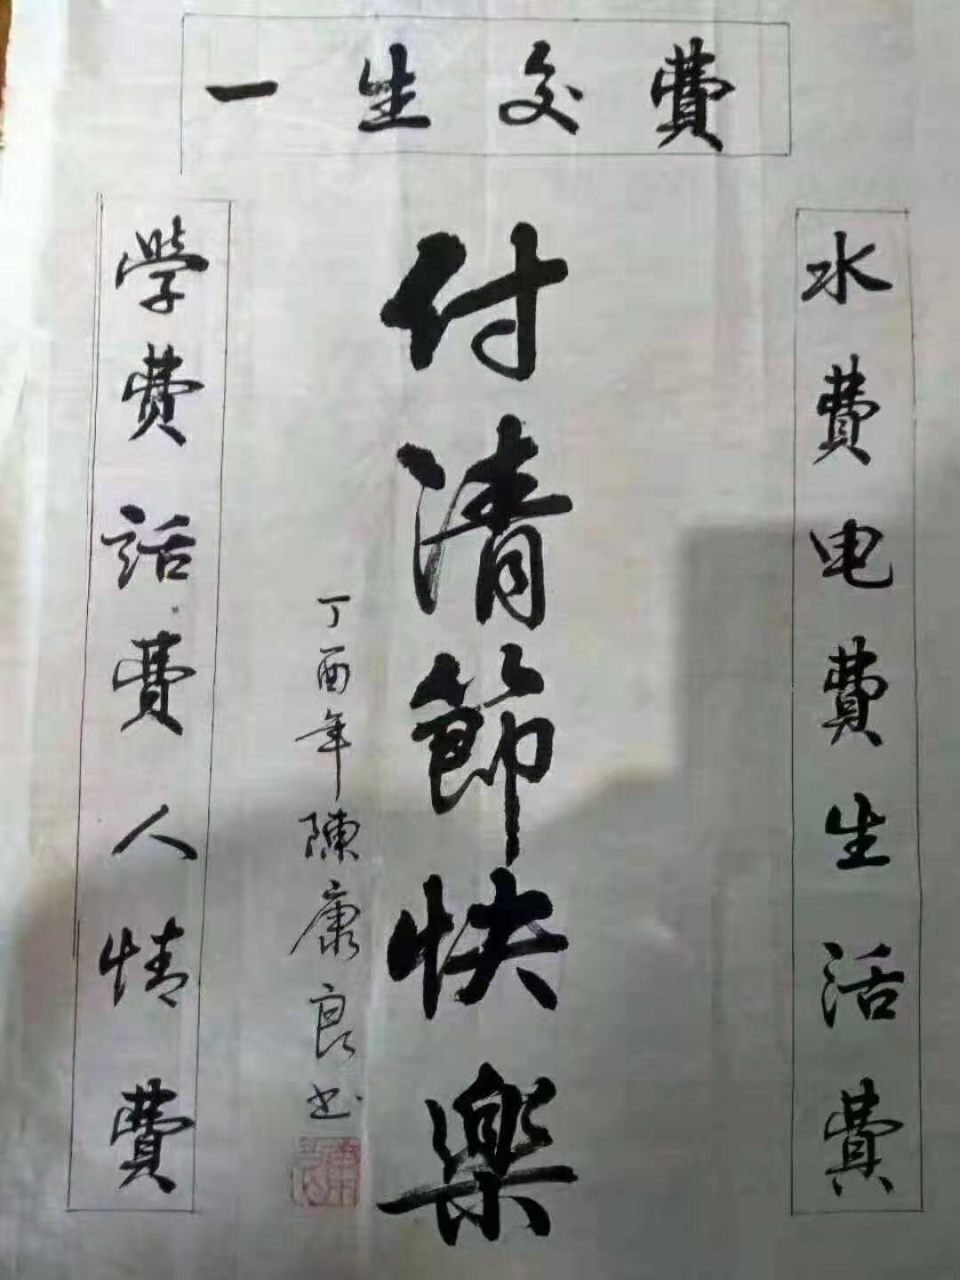 一生交費
水費电費生活費
付清節快樂
丁酉年陳康良书
學费話費人情費